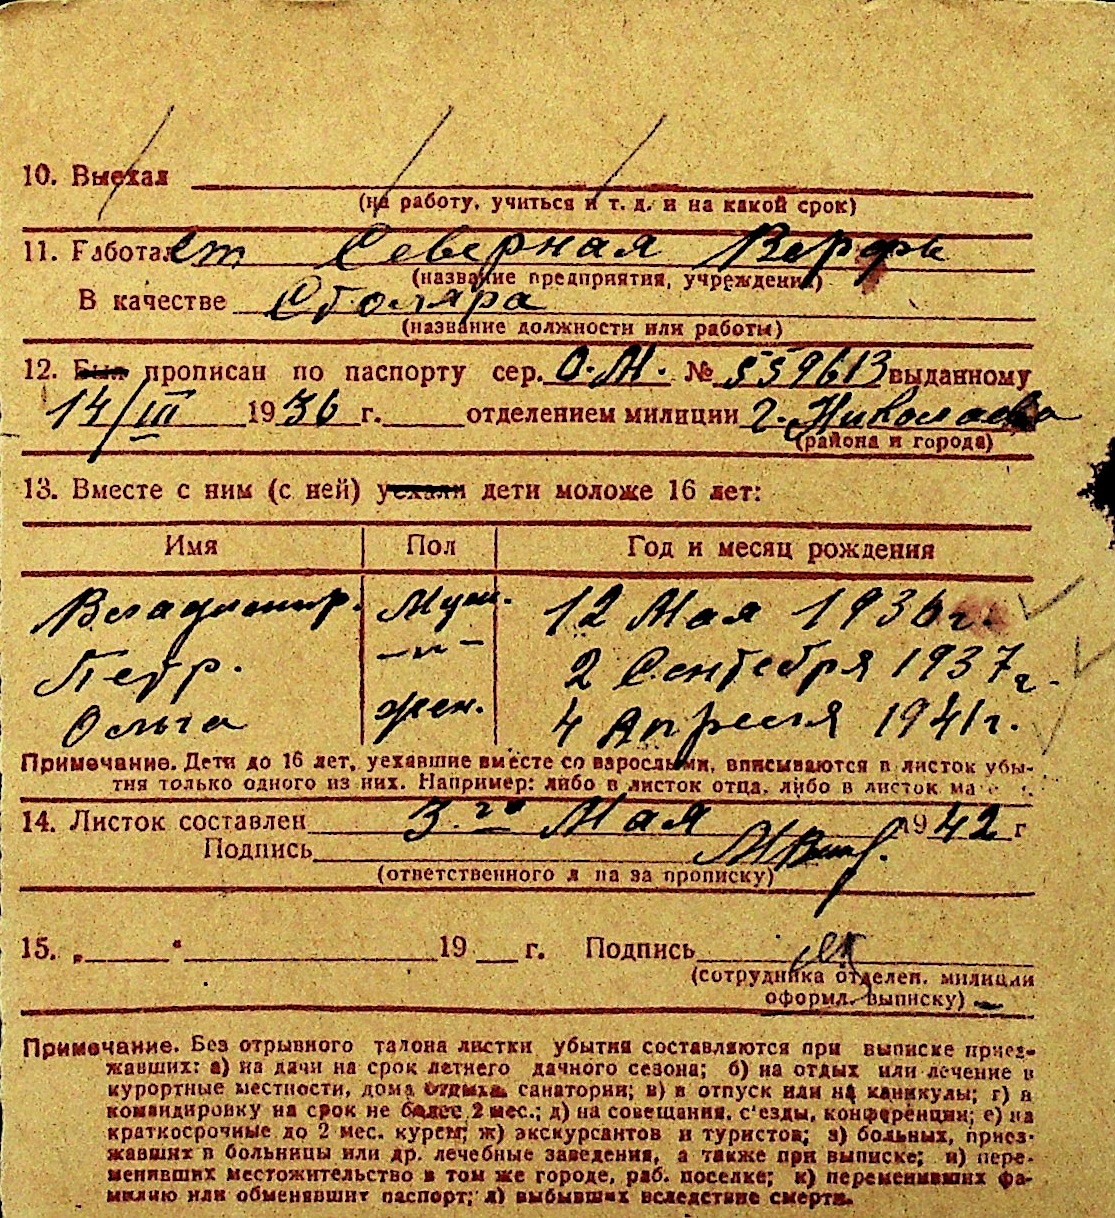 10. Выехал
(на работу, учиться и т. д. и на какой срок)
11. Работает Северная Верфь
(название предприятия, учреждения)
В качестве Столяра
(название должности или работы)
12. Был прописан по паспорту сер. О.М. № 559613 выданному
14/III 1936 г. отделением милиции г. Николаева
(района и города)
13. Вместе с ним (с ней) уехали дети моложе 16 лет:
Имя Пол Год и месяц рождения
Владимир. Муж. 12 Мая 1936 г.
Петр. —"— 2 Сентября 1937 г.
Ольга жен. 4 Апреля 1941 г.
Примечание. Дети до 16 лет, уехавшие вместе со взрослыми, вписываются в листок убы-
тия только одного из них. Например: либо в листок отца, либо в листок ма
14. Листок составлен 3.го Мая 1942 г
Подпись
(ответственного л па за прописку)
15. „ " 19 г. Подпись
(сотрудника отделен. милиции
оформл. выписку)
Примечание. Без отрывного талона листки убытия составляются при выписке приез-
жавших: а) на дачи на срок летнего дачного сезона; б) на отдых или лечение в
курортные местности, дома отдыха, санатории; в) в отпуск или на каникулы; г) в
командировку на срок не более 2 мес.; д) на совещания, с'езды, конференции; е) на
краткосрочные до 2 мес. курсы; ж) экскурсантов и туристов; з) больных, приез-
жавших в больницы или др. лечебные заведения, а также при выписке; и) пере-
менивших местожительство в том же городе, раб. поселке; к) переменивших фа-
милию или обменявших паспорт; л) выбывших вследствие смерти.